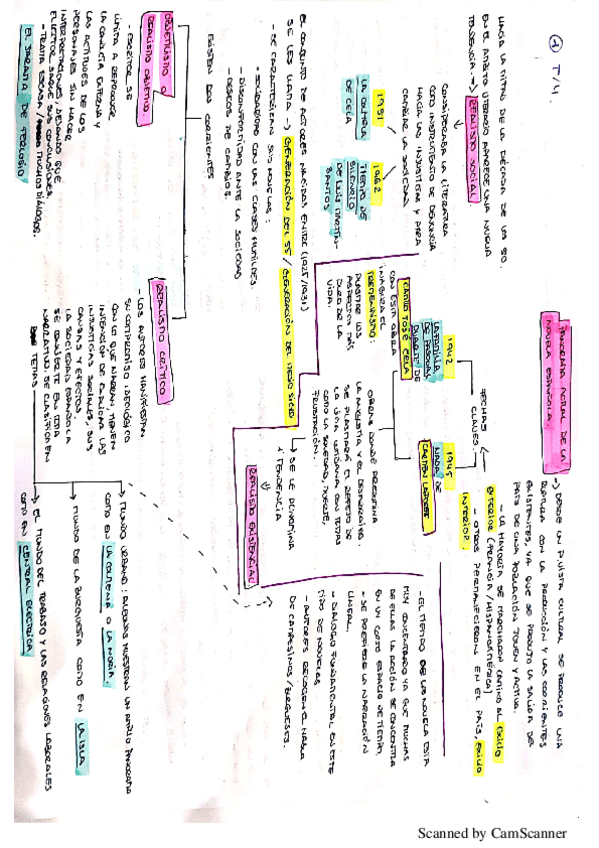 ① T/4.
PANORAMA ACTUAL DE LA
NOVELA ESPAÑOLA.
→ DESDE UN P.VISTA CULTURAL SE PRODUCE UNA
RUPTURA CON LA PRODUCCIÓN Y LAS CORRIENTES
EXISTENTES, YA QUE SE PRODUJO LA SALIDA DEL
PAÍS DE UNA POBLACIÓN JOVEN Y ACTIVA.
- LA MAYORÍA SE MARCHARON CAMINO AL EXILIO
EXTERIOR (FRANCIA/HISPANOAMÉRICA)
- OTROS PERMANECIERON EN EL PAÍS, EXILIO
INTERIOR.
FECHAS
CLAVES:
1942
LA FAMILIA
DE PASCUAL
DUARTE DE
CAMILO JOSÉ CELA
CON ESTA OBRA
INAGURA EL
TREMENDISMO:
PLASMAR LOS
ASPECTOS MÁS
DUROS DE LA
VIDA.
1945
NADA DE
CARMEN LAFORET
OBRAS DONDE PREDOMINA
LA ANGUSTIA Y EL DESARRAIGO.
SE PLASMARÁ EL REFLEJO DE
LA VIDA COTIDIANA CON TEMAS
COMO LA SOLEDAD, MUERTE,
FRUSTRACIÓN.
→ SE LE DENOMINA
A TENDENCIA
REALISMO EXISTENCIAL.
- EL TIEMPO DE LAS NOVELA ESTÁ
MUY CONCENTRADO YA QUE MUCHAS
DE ELLAS LA ACCIÓN SE CONCENTRA
EN UN CORTO ESPACIO DE TIEMPO.
- SE PREFIERE LA NARRACIÓN
LINEAL.
- DIÁLOGO FUNDAMENTAL EN ESTE
TIPO DE NOVELAS
- AUTORES RECOGEN EL HABLA
DE CAMPESINOS / BURGUESES.
HACIA LA MITAD DE LA DÉCADA DE LOS 50.
EN EL ÁMBITO LITERARIO APARECE UNA NUEVA
TENDENCIA → REALISMO SOCIAL.
CONSIDERABA LA LITERATURA
COMO INSTRUMENTO DE DENUNCIA
HACIA LAS INJUSTICIAS Y PARA
CAMBIAR LA SOCIEDAD.
1951
LA COLMENA
DE CELA
1962
TIEMPO DE
SILENCIO
DE LUIS MARTÍN-
SANTOS
EL CONJUNTO DE AUTORES NACIDAS ENTRE (1925/1931)
SE LES LLAMA → GENERACIÓN DEL 55 / GENERACIÓN DEL MEDIO SIGLO
- SE CARACTERIZAN SUS NOVELAS:
- SOLIDARIDAD CON LAS CLASES HUMILDES.
- DISCONFORMIDAD ANTE LA SOCIEDAD
- DESEOS DE CAMBIOS.
EXISTEN DOS CORRIENTES
OBJETIVISMO O
REALISMO OBJETIVO.
- ESCRITOR SE
LIMITA A REPRODUCIR
LA CONDUCTA EXTERNA Y
LAS ACTITUDES DE LOS
PERSONAJES SIN HACER
INTERPRETACIONES, DEJANDO QUE
EL LECTOR SAQUE SUS CONCLUSIONES.
- TRAMA ESCASA / MUCHOS DIÁLOGOS.
EL JARAMA DE FERLOSIO
REALISMO CRÍTICO
- LOS AUTORES MANIFIESTAN
SU COMPROMISO IDEOLÓGICO
CON LO QUE NARRAN, TIENEN
INTENCIÓN DE EXPLICAR LAS
INJUSTICIAS SOCIALES, SUS
CAUSAS Y EFECTOS
LA SOCIEDAD ESPAÑOLA
SE CONVIERTE EN TEMA
NARRATIVO. SE CLASIFICA EN
TEMAS
→ MUNDO URBANO: ALGUNAS MUESTRAN UN AMPLIO PANORAMA
COMO EN LA COLMENA O LA NORIA.
→ MUNDO DE LA BURGUESÍA COMO EN LA ISLA
→ EL MUNDO DEL TRABAJO Y LAS RELACIONES LABORALES
COMO EN CENTRAL ELÉCTRICA.
Scanned by CamScanner